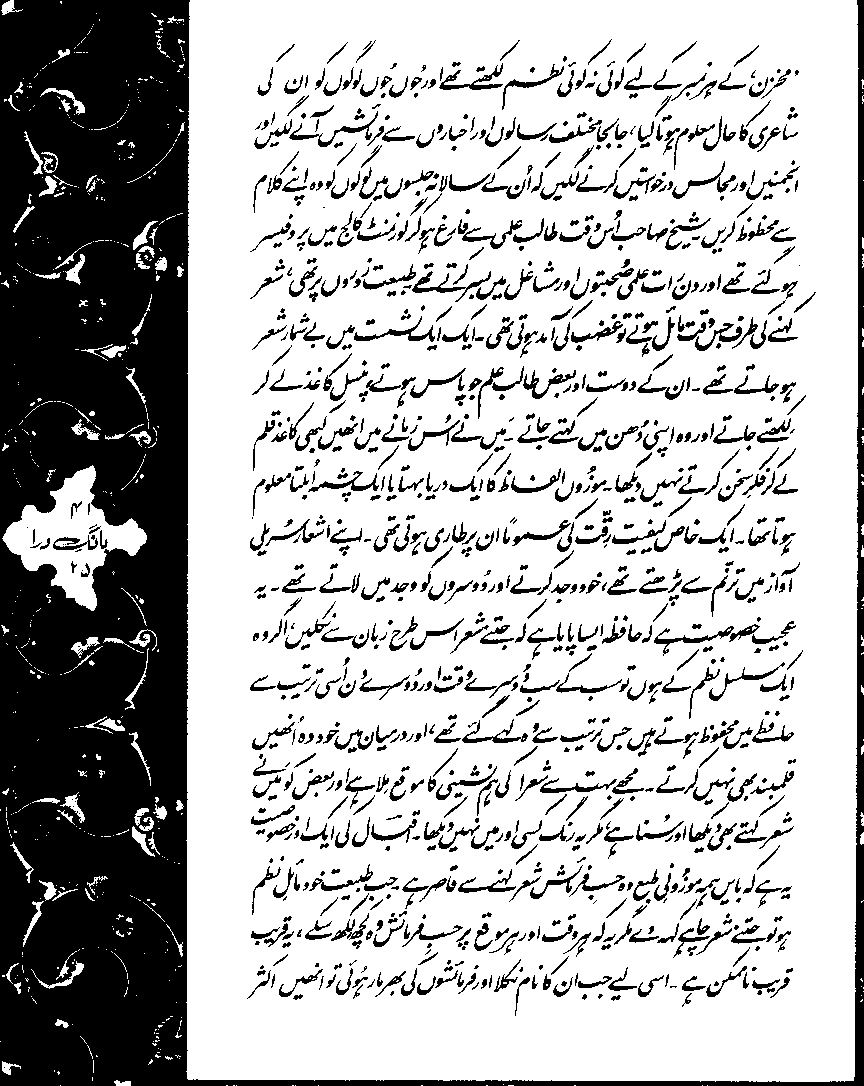 'مخزن' کے ہر نمبر کے لیے کوئی نہ کوئی نظم لکھتے تھے اور جُوں جُوں لوگوں کو ان کی
شاعری کا حال معلوم ہوتا گیا، جابجا مختلف رسالوں اور اخباروں سے فرمائشیں آنے لگیں اور
انجمنیں اور مجالس درخواستیں کرنے لگیں کہ اُن کے سالانہ جلسوں میں لوگوں کو وہ اپنے کلام
سے محظوظ کریں۔ شیخ صاحب اُس وقت طالب علمی سے فارغ ہو کر گورنمنٹ کالج میں پروفیسر
ہو گئے تھے اور دن رات علمی صُحبتوں اور مشاغل میں بسر کرتے تھے۔ طبیعت زوروں پر تھی، شعر
کہنے کی طرف جس وقت مائل ہوتے تو غضب کی آمد ہوتی تھی۔ ایک ایک نشست میں بے شمار شعر
ہو جاتے تھے۔ ان کے دوست اور بعض طالب علم جو پاس ہوتے، پنسل کاغذ لے کر
لکھتے جاتے اور وہ اپنی دُھن میں کہتے جاتے۔ مَیں نے اُس زمانے میں انھیں کبھی کاغذ قلم
لے کر فکرِ سخن کرتے نہیں دیکھا۔ موزُوں الفاظ کا ایک دریا بہتا یا ایک چشمہ اُبلتا معلوم
ہوتا تھا۔ ایک خاص کیفیت رقّت کی عموماً ان پر طاری ہوتی تھی۔ اپنے اشعار سُریلی
آواز میں ترنّم سے پڑھتے تھے، خود وجد کرتے اور دُوسروں کو وجد میں لاتے تھے۔ یہ
عجیب خصوصیت ہے کہ حافظہ ایسا پایا ہے کہ جتنے شعر اس طرح زبان سے نکلیں، اگر وہ
ایک مسلسل نظم کے ہوں تو سب کے سب دُوسرے وقت اور دُوسرے دن اُسی ترتیب سے
حافظے میں محفوظ ہوتے ہیں جس ترتیب سے وہ کہے گئے تھے، اور درمیان میں خود وہ اُنھیں
قلمبند بھی نہیں کرتے۔ مجھے بہت سے شعرا کی ہم نشینی کا موقع مِلا ہے اور بعض کو مَیں نے
شعر کہتے بھی دیکھا اور سُنا ہے، مگر یہ رنگ کسی اور میں نہیں دیکھا۔ اقبال کی ایک اور خصوصیت
یہ ہے کہ بایں ہمہ موزُونیِ طبع وہ حسبِ فرمائش شعر کہنے سے قاصر ہے۔ جب طبیعت خود مائلِ نظم
ہو تو جتنے شعر چاہے کہہ دے مگر یہ کہ ہر وقت اور ہر موقع پر حسبِ فرمائش وہ کچھ لکھ سکے، یہ قریب
قریب ناممکن ہے۔ اسی لیے جب ان کا نام نکلا اور فرمائشوں کی بھرمار ہُوئی تو انھیں اکثر
۴۱
بانگِ درا
۲۵